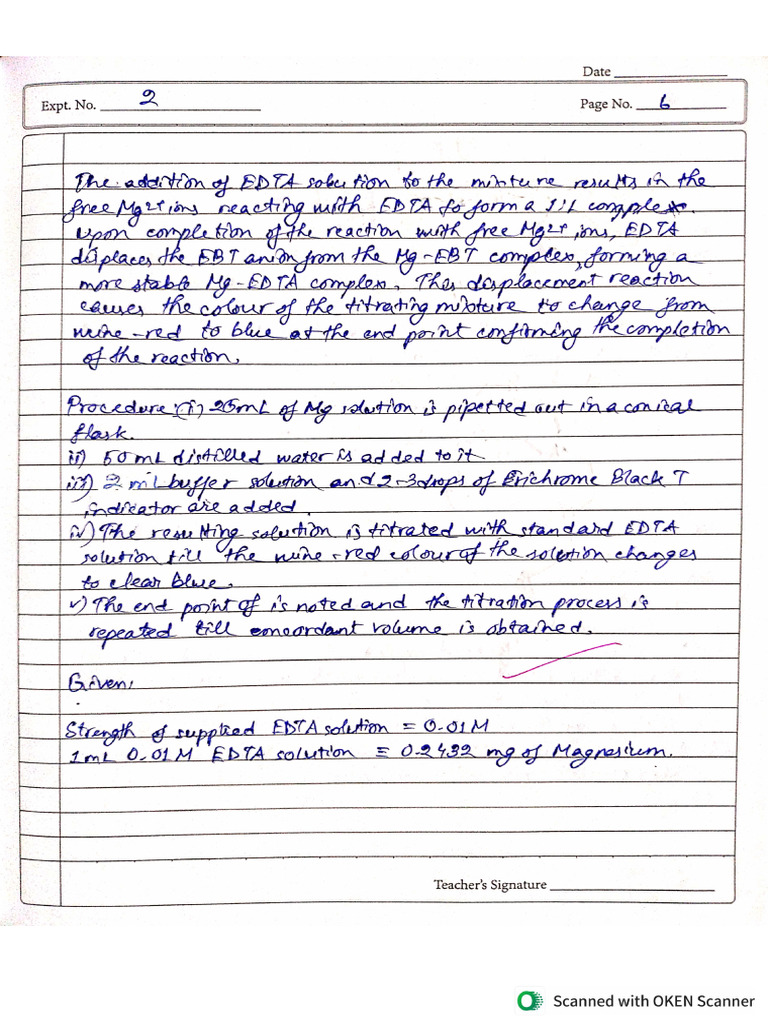 Date
Expt. No. 2
Page No. 6
The addition of EDTA solution to the mixture results in the
free Mg2+ ions reacting with EDTA to form a 1:1 complex.
Upon completion of the reaction with free Mg2+ ions, EDTA
displaces the EBT anion from the Mg-EBT complex, forming a
more stable Mg-EDTA complex. This displacement reaction
causes the colour of the titrating mixture to change from
wine-red to blue at the end point confirming the completion
of the reaction.
Procedure: (i) 25mL of Mg solution is pipetted out in a conical
flask.
ii) 50 mL distilled water is added to it
iii) 2 mL buffer solution and 2-3 drops of Erichrome Black T
indicator are added.
iv) The resulting solution is titrated with standard EDTA
solution till the wine-red colour of the solution changes
to clear blue.
v) The end point of is noted and the titration process is
repeated till concordant volume is obtained.
Given:
Strength of supplied EDTA solution = 0.01M
1mL 0.01M EDTA solution ≡ 0.2432 mg of Magnesium.
Teacher's Signature
Scanned with OKEN Scanner